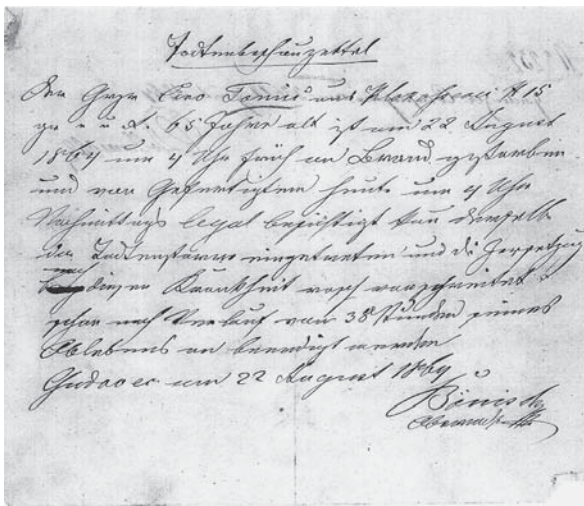 Todtenbeschauzettel
Der Ciro aus 15
65 Jahre alt ist am 22. August
1864 um 4 Uhr früh an Brand gestorben
und vom Gefertigten heute um 4 Uhr
Nachmittags legal besichtigt kann derselbe
da Todtenstarre eingetreten und die Zersetzung
nach dieser Krankheit rasch vorschreitet
schon nach Verlauf von 38 Stunden seines
Ablebens an beerdigt werden
am 22 August 1864
Bönisch